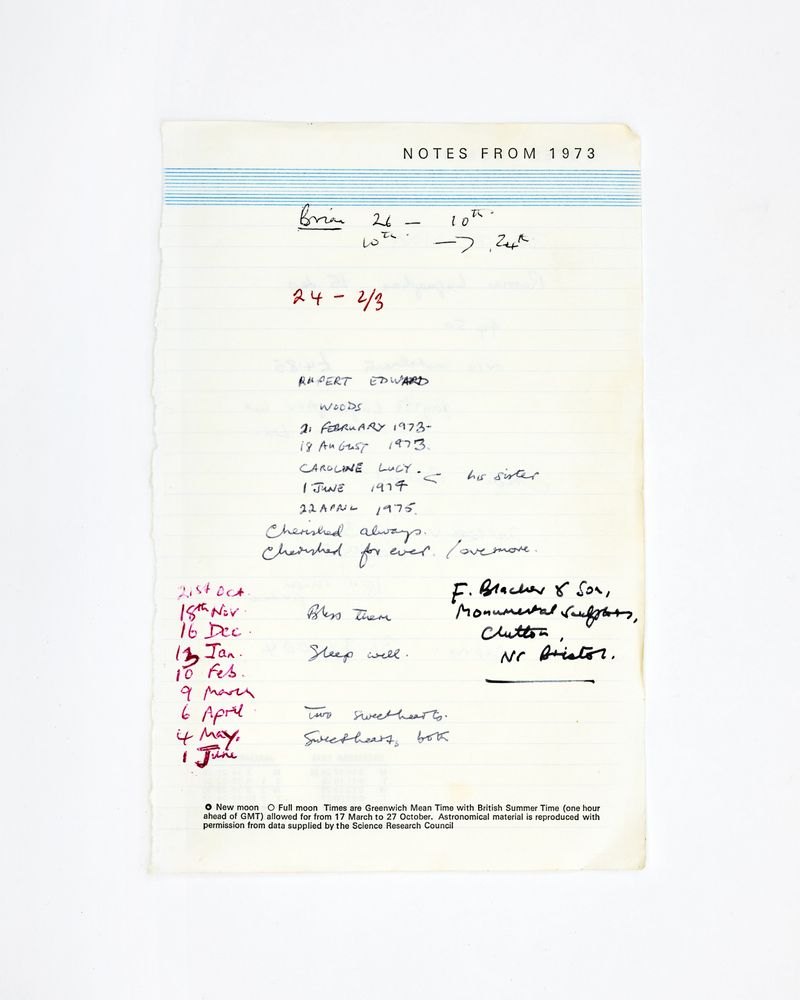 NOTES FROM 1973
Brian 26 — 10th.
10th. → 24th
24 - 2/3
RUPERT EDWARD
WOODS
21 FEBRUARY 1973-
18 AUGUST 1973.
CAROLINE LUCY.
his sister
1 JUNE 1974
22 APRIL 1975.
Cherished always.
Cherished for ever. /overmore.
21st Oct.
18th Nov.
16 Dec.
13 Jan.
10 Feb.
9 March
6 April
4 May.
1 June
Bless them
Sleep well.
Two sweethearts.
Sweethearts, both
F. Blacker & Son,
Monumental Sculptors,
Clutton,
Nr Bristol.
O New moon O Full moon Times are Greenwich Mean Time with British Summer Time (one hour
ahead of GMT) allowed for from 17 March to 27 October. Astronomical material is reproduced with
permission from data supplied by the Science Research Council